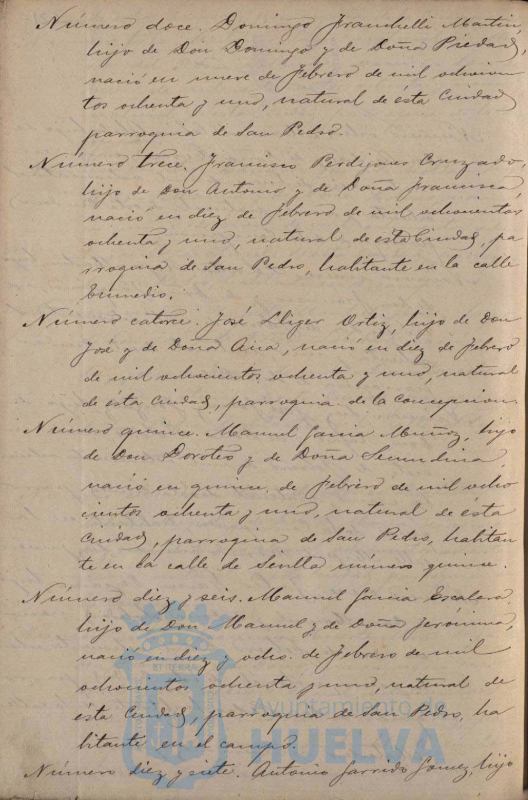 Número doce. Domingo Franchelli Martin,
hijo de Don Domingo y de Doña Piedad,
nació en nueve de Febrero de mil ochocien
tos ochenta y uno, natural de ésta Ciudad
parroquia de San Pedro.
Número trece. Francisco Perdigones Cruzado,
hijo de Don Antonio y de Doña Francisca,
nació en diez de Febrero de mil ochocientos
ochenta y uno, natural de esta Ciudad, pa
rroquia de San Pedro, habitante en la calle
Enmedio.
Número catorce. José Lliger Ortiz, hijo de Don
José y de Doña Ana, nació en diez de Febrero
de mil ochocientos ochenta y uno, natural
de ésta Ciudad, parroquia de la Concepcion.
Número quince. Manuel Garcia Muñoz, hijo
de Don Doroteo y de Doña Secundina
nació en quince de Febrero de mil ocho
cientos ochenta y uno, natural de ésta
Ciudad, parroquia de San Pedro, habitan
te en la calle de Sevilla número quince.
Número diez y seis. Manuel Garcia Escalera
hijo de Don Manuel y de Doña Jerónima,
nació en diez y ocho de Febrero de mil
ochocientos ochenta y uno, natural de
ésta Ciudad, parroquia de San Pedro, ha
bitante en el campo.
Número diez y siete. Antonio Garrido Gomez, hijo
Ayuntamiento de
HUELVA